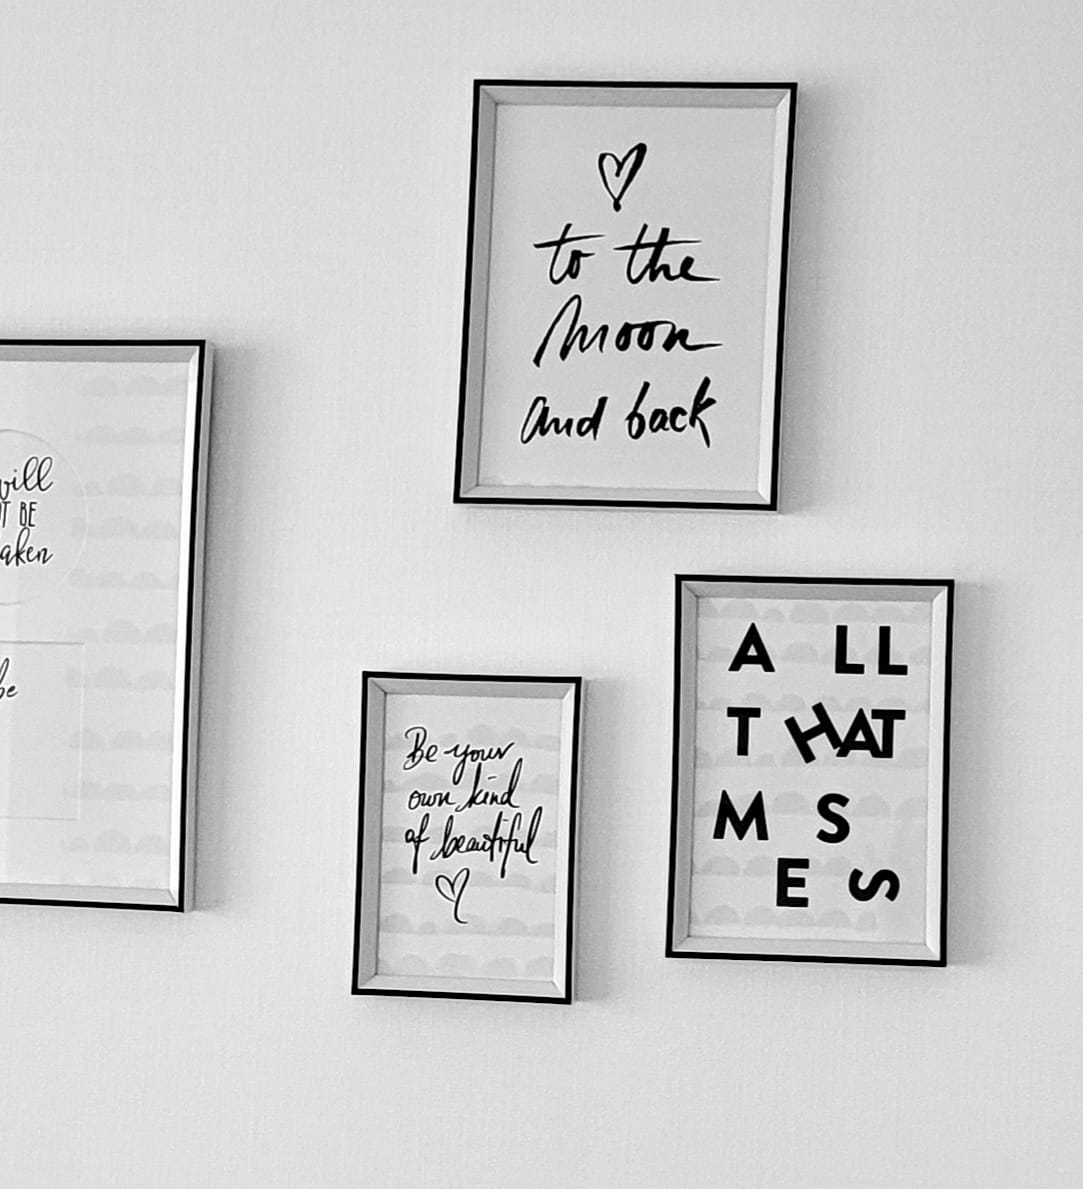 to the
Moon
and back
BE
be
Be your
own kind
of beautiful
A LL
T HAT
M S
E S